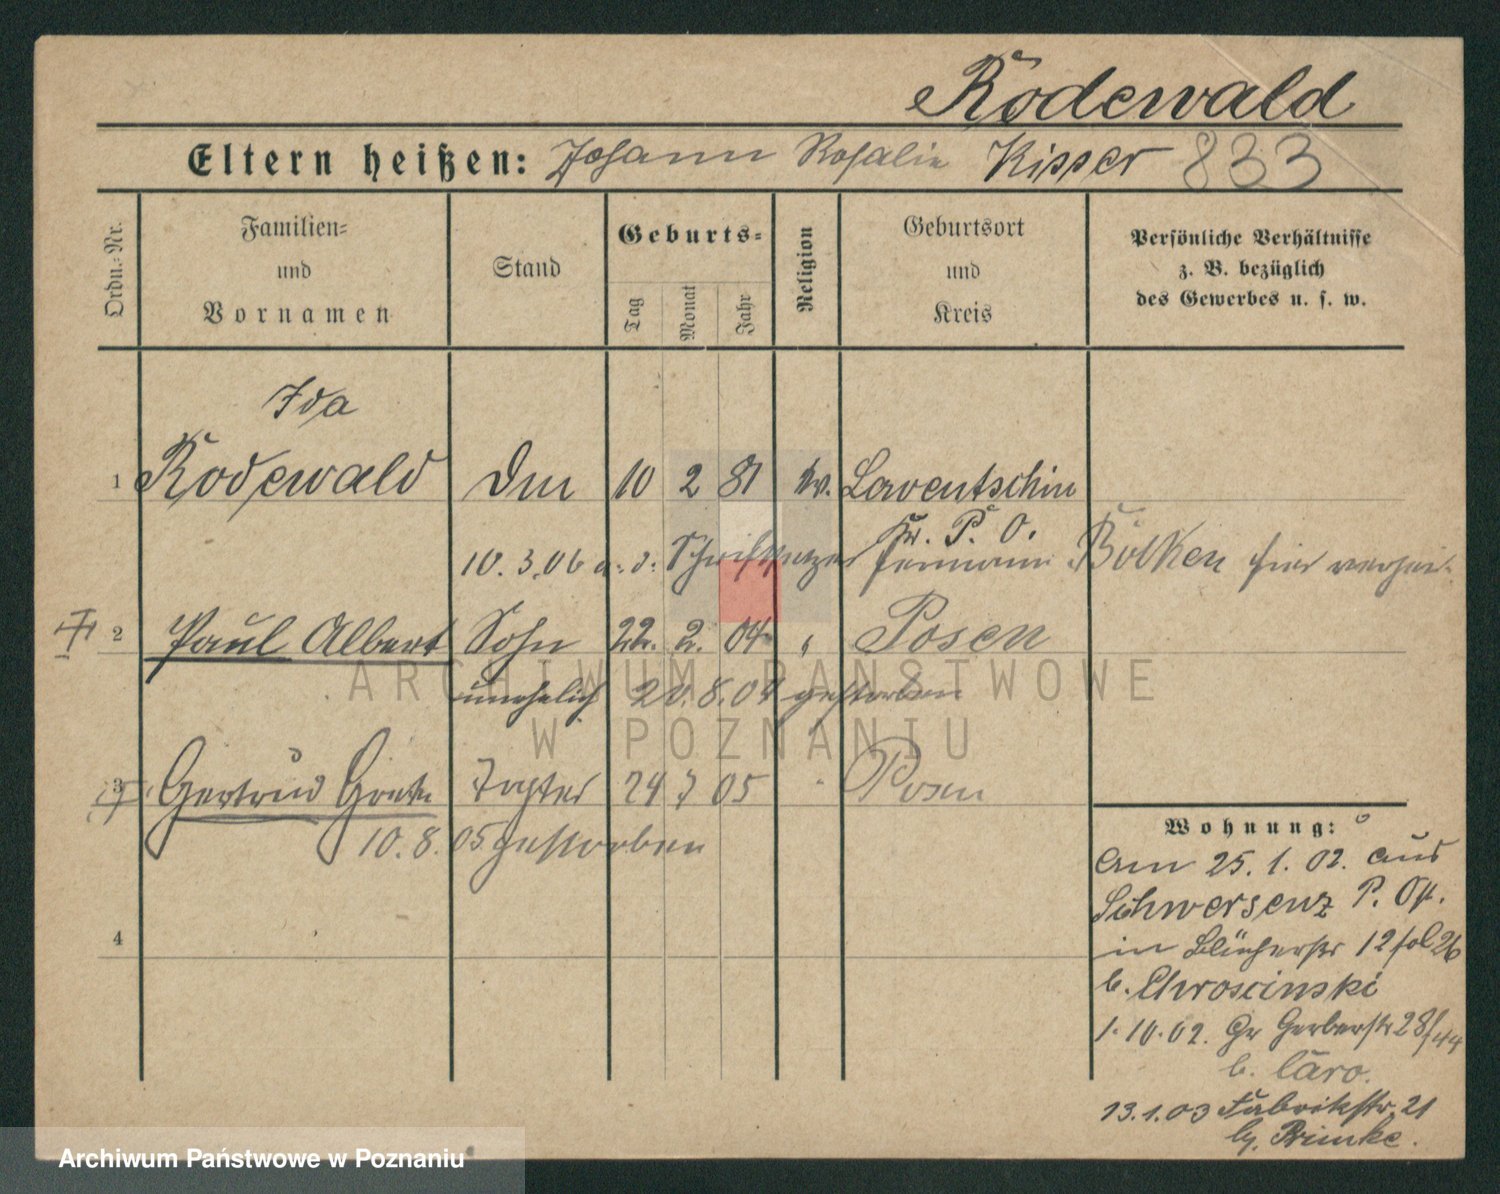 Rodewald
Eltern heißen: Johann Rosalie Kisser 833
Ordn.-Nr.
Familien-
und
Vornamen
Stand
Geburts-
Tag
Monat
Jahr
Religion
Geburtsort
und
Kreis
Persönliche Verhältnisse
z. B. bezüglich
des Gewerbes u. s. w.
Ida
1 Rodewald 10 2 81 Ev. Laventschin
Kr. P. O.
10. 3. 06 a. d. Schriftsetzer Hermann Bölken hier
2 Paul Albert Sohn 22. 2. 04 " Posen
unehelich 20. 8. 04 gestorben
3 Gertrud Tochter 24 7 05 " Posen
10. 8. 05 gestorben
4
Wohnung:
Am 25. 1. 02. aus
Schwersenz P. Ost.
in Blücherstr 12 fol 26
b. Chroscinski
1. 10. 02. Gr Gerberstr 28/44
b. Caro.
13. 1. 03 Fabrikstr. 21
by. Primke.
ARCHIWUM PAŃSTWOWE
W POZNANIU
Archiwum Państwowe w Poznaniu